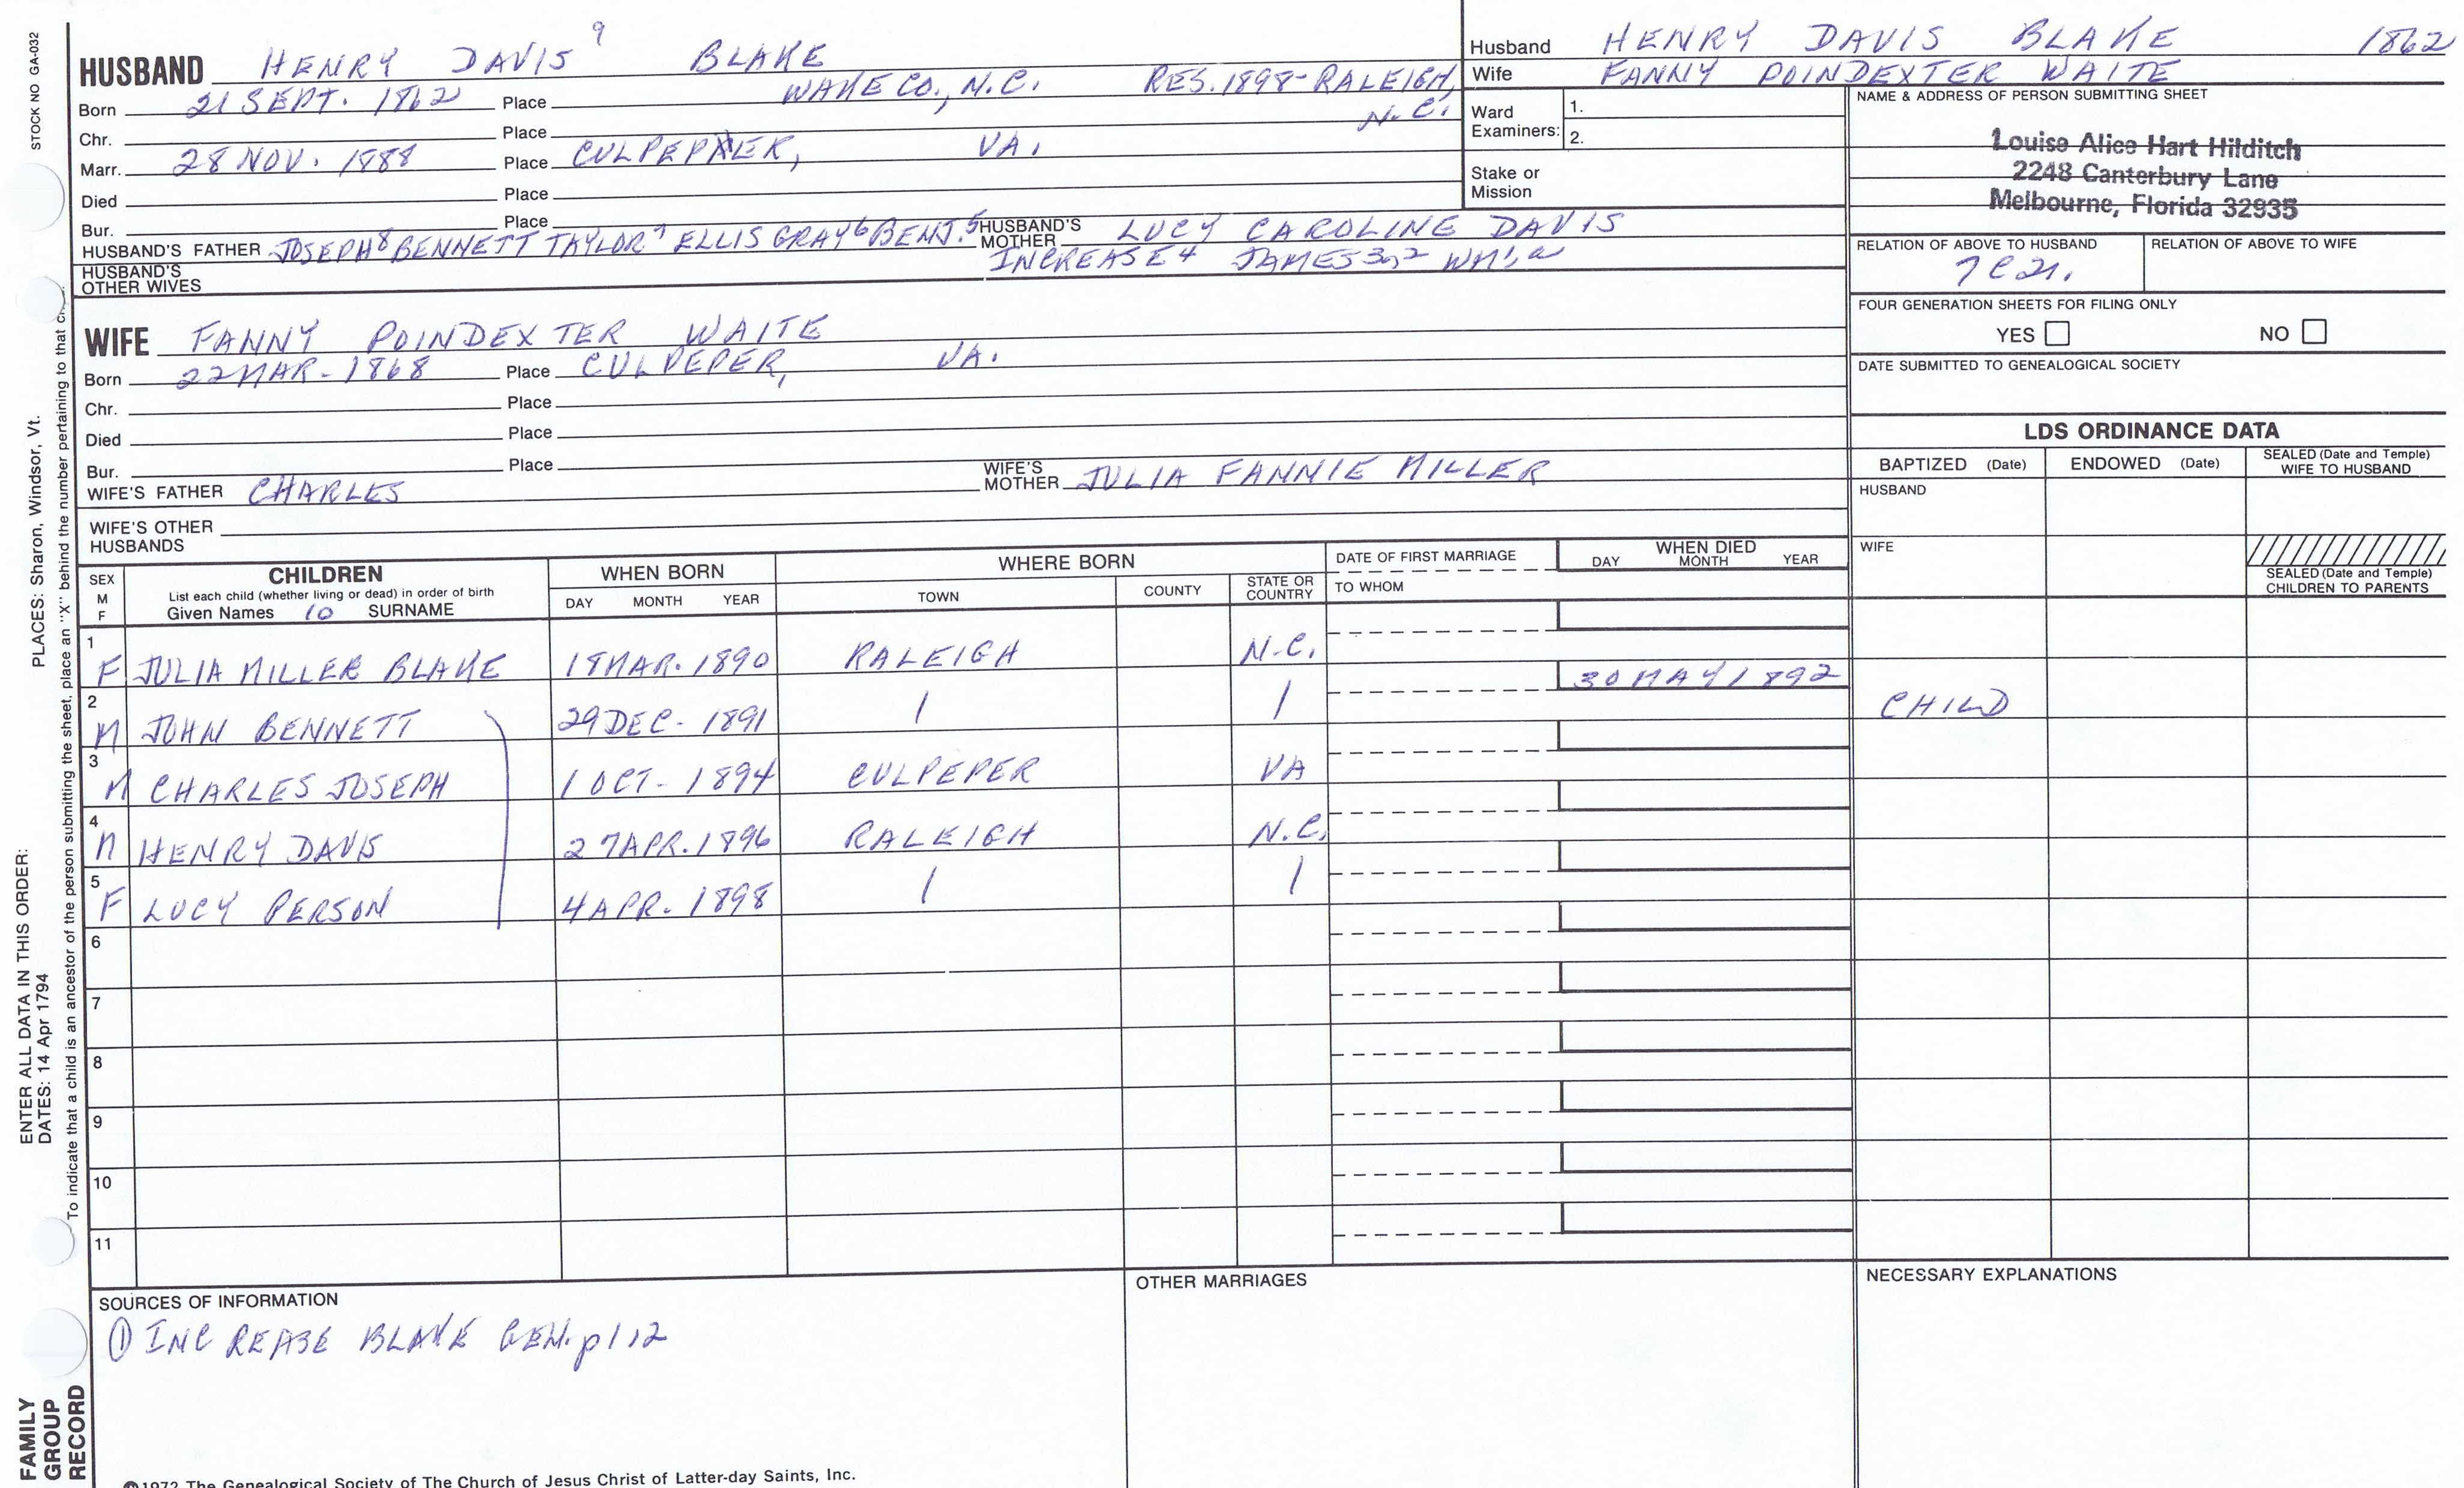 STOCK NO GA-032
HUSBAND HENRY DAVIS 9 BLAKE
Born 21 SEPT. 1862 Place WAKE CO., N.C. RES. 1898-RALEIGH, N.C.
Chr. Place
Marr. 28 NOV. 1888 Place CULPEPER, VA.
Died Place
Bur. Place
HUSBAND'S FATHER JOSEPH8 BENNETT TAYLOR7 ELLIS GRAY6 BENJ.5 HUSBAND'S MOTHER LUCY CAROLINE DAVIS
INCREASE4 JAMES3,2 WM1
HUSBAND'S OTHER WIVES
WIFE FANNY POINDEXTER WAITE
Born 22 MAR- 1868 Place CULPEPER, VA.
Chr. Place
Died Place
Bur. Place
WIFE'S FATHER CHARLES WIFE'S MOTHER JULIA FANNIE MILLER
WIFE'S OTHER HUSBANDS
Husband HENRY DAVIS BLAKE 1862
Wife FANNY POINDEXTER WAITE
Ward Examiners: 1.
2.
Stake or Mission
NAME & ADDRESS OF PERSON SUBMITTING SHEET
Louise Alice Hart Hilditch
2248 Canterbury Lane
Melbourne, Florida 32935
RELATION OF ABOVE TO HUSBAND RELATION OF ABOVE TO WIFE
7C2r.
FOUR GENERATION SHEETS FOR FILING ONLY
YES NO
DATE SUBMITTED TO GENEALOGICAL SOCIETY
LDS ORDINANCE DATA
BAPTIZED (Date) ENDOWED (Date) SEALED (Date and Temple) WIFE TO HUSBAND
HUSBAND
WIFE
SEALED (Date and Temple) CHILDREN TO PARENTS
SEX M F CHILDREN WHEN BORN WHERE BORN DATE OF FIRST MARRIAGE WHEN DIED
List each child (whether living or dead) in order of birth
Given Names 10 SURNAME DAY MONTH YEAR TOWN COUNTY STATE OR COUNTRY TO WHOM DAY MONTH YEAR
1 F JULIA MILLER BLAKE 18 MAR. 1890 RALEIGH N.C.
2 M JOHN BENNETT 29 DEC- 1891 | | 30 MAY 1892 CHILD
3 M CHARLES JOSEPH 1 OCT- 1894 CULPEPER VA
4 M HENRY DAVIS 27 APR. 1896 RALEIGH N.C.
5 F LUCY PERSON 4 APR. 1898 | |
6
7
8
9
10
11
SOURCES OF INFORMATION
① INCREASE BLAKE GEN. p112
OTHER MARRIAGES
NECESSARY EXPLANATIONS
©1972 The Genealogical Society of The Church of Jesus Christ of Latter-day Saints, Inc.
FAMILY GROUP RECORD
ENTER ALL DATA IN THIS ORDER:
DATES: 14 Apr 1794
PLACES: Sharon, Windsor, Vt.
To indicate that a child is an ancestor of the person submitting the sheet, place an "X" behind the number pertaining to that